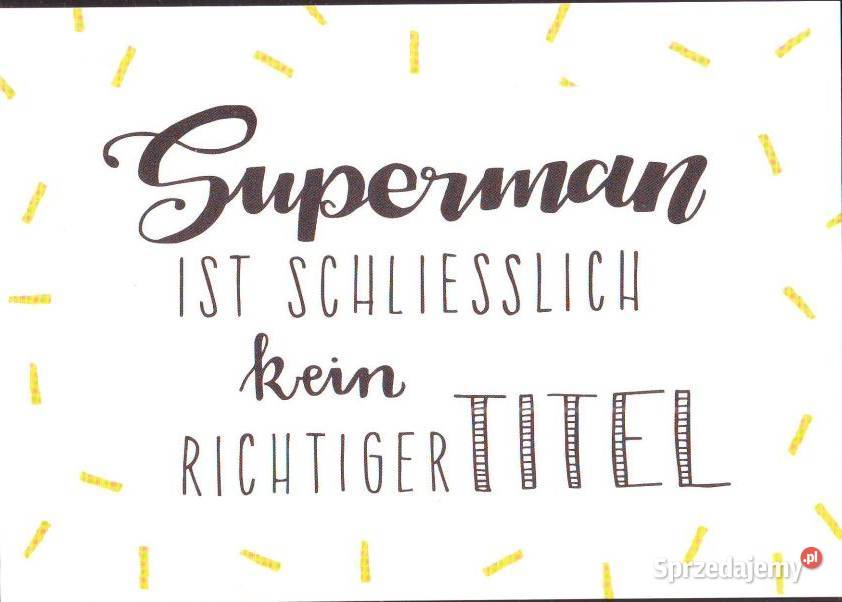 Superman
IST SCHLIESSLICH
kein
RICHTIGER TITEL
Sprzedajemy.pl